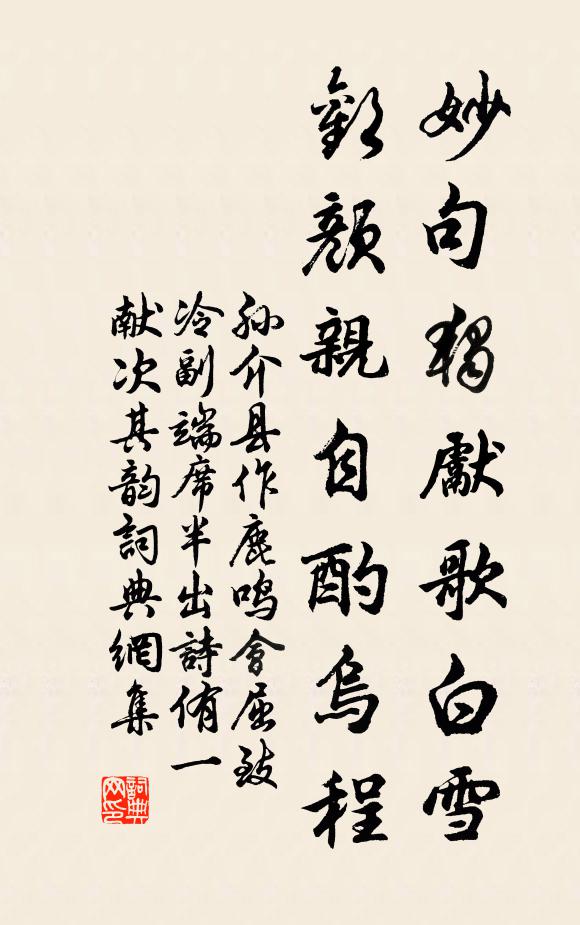 妙句獨獻歌白雪
歡顏親自酌烏程
孙介县作鹿鸣会屈致
冷副端席半出詩侑一
献次其韵詞典網集
詞典網印